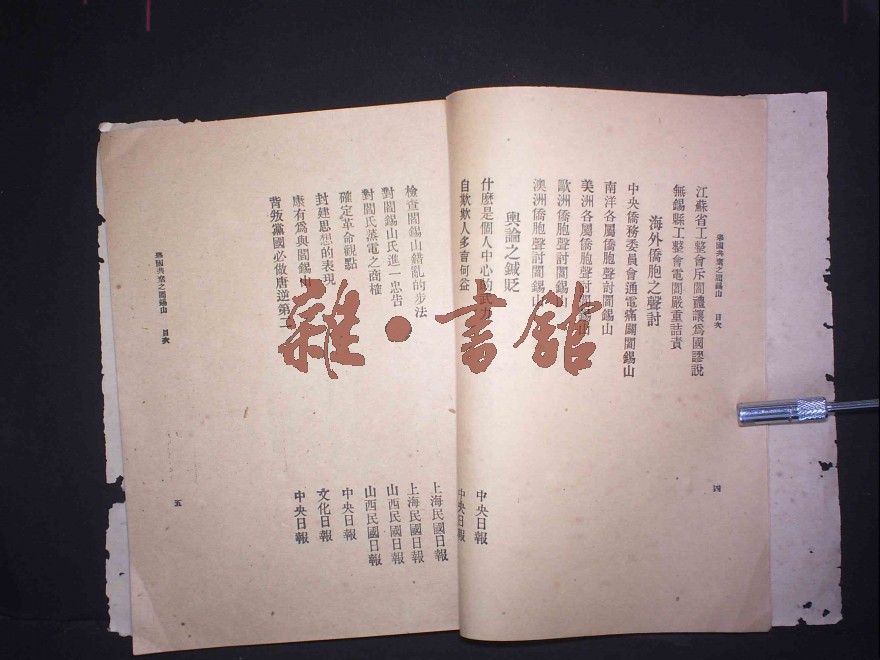 舉國共棄之閻錫山 目次
四
江蘇省工整會斥閻禮讓為國謬說
無錫縣工整會電閻嚴重詰責
海外僑胞之聲討
中央僑務委員會通電痛闢閻錫山
南洋各屬僑胞聲討閻錫山
美洲各屬僑胞聲討閻錫山
歐洲僑胞聲討閻錫山
澳洲僑胞聲討閻錫山
輿論之鍼貶
什麼是個人中心的武力 中央日報
自欺欺人多言何益 中央日報
上海民國日報
檢查閻錫山錯亂的步法 上海民國日報
對閻錫山氏進一忠告 山西民國日報
對閻氏蒸電之商榷 山西民國日報
確定革命觀點 中央日報
封建思想的表現 文化日報
康有為與閻錫山 中央日報
背叛黨國必做唐逆第二
舉國共棄之閻錫山 目次
五
雜·書館